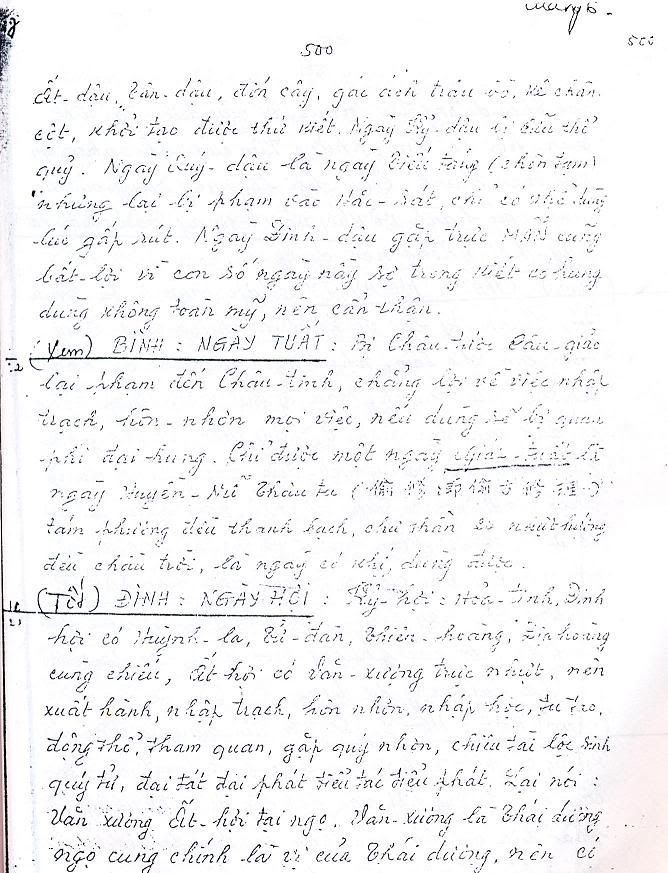 500
500
Ất-dậu, Tân-dậu, đốn cây, gác đích trâu bò, kê chân
cột, khởi tạo được thứ kiết. Ngày Kỷ-dậu bị cửu thổ
quỷ. Ngày Quý-dậu là ngày Tiểu táng (chôn tạm)
nhưng lại bị phạm vào Hắc-sát, chỉ có nhỏ dùng
lúc gấp rút. Ngày Đinh-dậu gặp trực MÃN cũng
bất-lợi vì con số ngày này sợ trong kiết có hung
dùng không toàn mỹ, nên cẩn thận.
(Xem) BÌNH : NGÀY TUẤT : Bị Châu-tước Câu-giảo
lại phạm đến Châu-tinh, chẳng lợi về việc nhập
trạch, hôn-nhơn mọi việc, nếu dùng sẽ bị quan
phi đại hung. Chỉ được một ngày Giáp-Tuất là
ngày Huyền-Nữ Thâu tu (偷修 即偷方修理)
tám phương đều thanh bạch, chư thần có nhựt hướng
đều chầu trời, là ngày có khí, dùng được.
(Tốt) ĐÌNH : NGÀY HỢI : Kỷ-hợi : Hỏa-tinh, Đinh
hợi có Huỳnh-la, Tử-đàn, Thiên-hoàng, Địa hoàng
cùng chiếu, Ất-hợi có Văn-xương trực nhựt, nên
xuất hành, nhập trạch, hôn nhơn, nhập học, tu tạo,
động thổ, tham quan, gặp quý nhơn, chiêu tài lộc sinh
quý tử, đại tát đại phát tiểu tát tiểu phát. Lại nói :
Văn xương Ất-hợi tại ngọ. Văn-xương là Thái dương
ngọ cung chính là vị của Thái dương, nên có